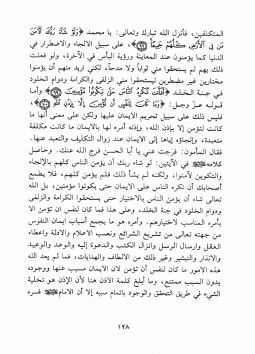 المتكلفين، فأنزل الله تبارك وتعالى: يا محمد ﴿وَلَوْ شَاءَ رَبُّكَ لَآمَنَ
مَن فِي الْأَرْضِ كُلُّهُمْ جَمِيعًا﴾، على سبيل الالجاء والاضطرار في
الدنيا كما يؤمنون عند المعاينة ورؤية البأس في الآخرة، ولو فعلت
ذلك بهم لم يستحقوا مني ثواباً ولا مدحاً، لكني اريد منهم أن يؤمنوا
مختارين غير مضطرين ليستحقوا مني الزلفى والكرامة ودوام الخلود
في جنة الخلد ﴿أَفَأَنتَ تُكْرِهُ النَّاسَ حَتَّىٰ يَكُونُوا مُؤْمِنِينَ﴾، وأما
قوله عزّ وجل: ﴿وَمَا كَانَ لِنَفْسٍ أَن تُؤْمِنَ إِلَّا بِإِذْنِ اللَّهِ﴾،
فليس ذلك على سبيل تحريم الايمان عليها ولكن على معنى أنها ما
كانت لتؤمن إلا بإذن الله، وإذنه أمره لها بالايمان ما كانت مكلفة
متعبدة، وإلجاؤه إياها إلى الايمان عند زوال التكليف والتعبد عنها.
فقال المأمون: فرجت عني يا أبا الحسن فرج الله عنك. وحاصل
كلامه في الآيتين: لو شاء ربك أن يؤمن الناس كلهم بالإلجاء
والتكوين لآمنوا، ولكنه لم يشأ ذلك فلم يؤمن كلهم، فلا يطمع
أصحابك أن تكره الناس على الايمان حتى يكونوا مؤمنين، بل الله
تعالى شاء أن يؤمن الناس بالاختيار حتى يستحقوا الكرامة والزلفى
ودوام الخلود في جنة الخلد، وعلى هذا فما كان لنفس أن تؤمن الا
بأمره المناسب لاختيارهم. وأمره هو ما يجمع أسباب ايمان النفوس
من جهته تعالى من تشريع الشرائع ونصب الاعلام والادلة واعطاء
العقل وارسال الرسل وانزال الكتب والدعوة إليه والوعد والوعيد
والانذار والتبشير وغير ذلك من الالطاف والهدايات، فما لم يعد الله
هذه الامور ما كان لنفس أن تؤمن لان الايمان مسبب عنها ووجوده
بدون السبب ممتنع، وما أبلغ كلامه الاذن هنا لأن الإذن هو تخلية
الشيء في طريق التحقق والوجود باتمام سببه إلا أن الامام فسره
١٢٨